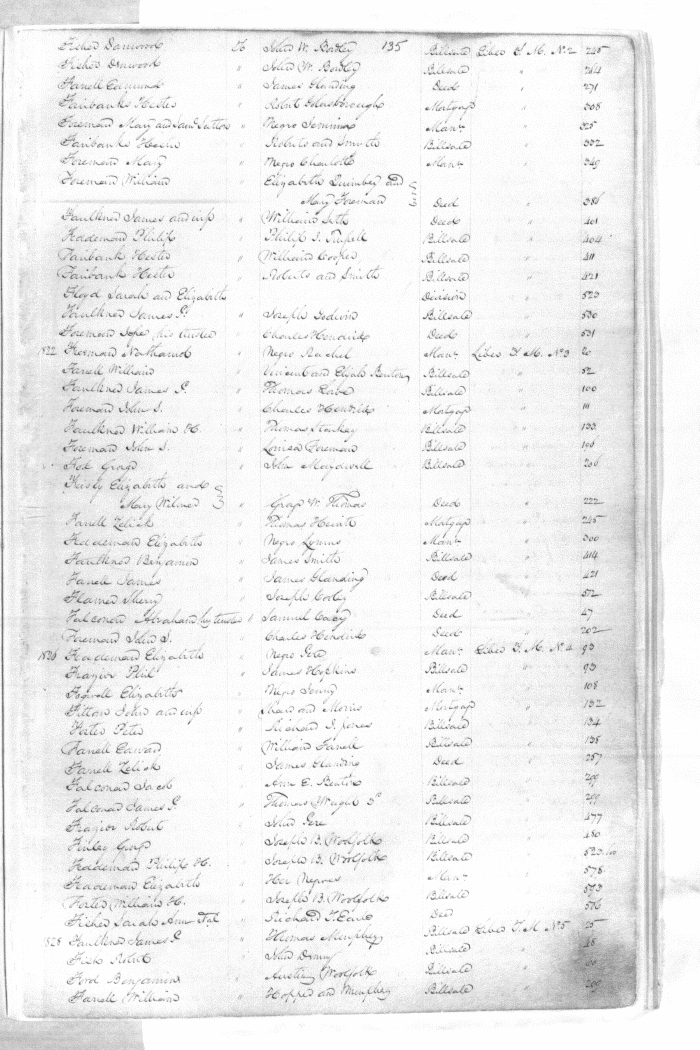 Fisher Darwood to John W. Bordley 135 Billsale Liber T M. No. 2 245
Fisher Darwood " John W. Bordley Billsale " 264
Farrell Edmund " James Glanding Deed " 271
Fairbanks Hester " Robert Goldsborough Mortgage " 308
Foreman Mary and Saml Sutton " Negro Jemima Manr " 325
Fairbanks Hester " Roberts and Smyth Billsale " 332
Foreman Mary " Negro Charlotte Manr " 349
Foreman William " Elizabeth Quimbey and
Mary Foreman Deed " 386
Faulkner James and wife " William Seth Deed " 401
Hardeman Philip " Philip T. Billsale " 404
Fairbank Hester " William Cooper Billsale " 411
Fairbank Hester " Roberts and Smith Billsale " 421
Floyd Sarah and Elizabeth Division " 523
Faulkner James P. " Joseph Godwin Billsale " 530
Foreman his trustee " Charles Hendrick Deed " 531
1822 Foreman Nathaniel " Negro Rachel Manr Liber T M. No. 3 20
Farrell William " Vincent and Elijah Benton Billsale " 52
Faulkner James P. " Thomas Billsale " 100
Foreman John S. " Charles Hendrick Mortgage " 111
Faulkner William H. " Thomas Starkey Billsale " 133
Foreman John S. " Louisa Foreman Billsale " 196
Fox Grayp " John Maydwell Billsale " 206
Elizabeth and
Mary Wilmer " Grayp W. Thomas Deed " 222
Farrell Zelick " Thomas Hewitt Mortgage " 245
Hardeman Elizabeth " Negro Lymus Manr " 300
Faulkner Benjamin " James Smith Billsale " 414
Farrell James " James Glanding Deed " 421
Flamer Sherry " Joseph Billsale " 572
Falconar Abraham his trustee " Samuel Deed " 47
Foreman John S. " Charles Hendrick Deed " 202
1826 Hardeman Elizabeth " Negro Pere Manr Liber T. M. No. 4 93
Frazier Phil " James Hopkins Billsale " 93
Elizabeth " Negro Jenny Manr " 108
Fitton John and wife " and Harris Mortgage " 132
Foster Peter " Richard I. Jones Billsale " 134
Farrell Edward " William Farrell Billsale " 138
Farrell Zelick " James Glanding Deed " 257
Falconar Jacob " Ann E. Benton Billsale " 299
Falconar James P. " Thomas Wright 3d Billsale " 299
Frazier Robert " John Billsale " 477
Finley " Joseph B. Woolfolk Billsale " 480
Hardeman Philip H. " Joseph B. Woolfolk Billsale " 523
Hardeman Elizabeth " Her Negroes Manr " 578
Foster William H. " Joseph B. Woolfolk Billsale " 593
Fisher Sarah Ann " Richard T. Earle Deed " 596
1828 Faulkner James P. " Thomas Murphey Billsale Liber T. M. No. 5 25
Fish Robert " John Denny Billsale " 48
Ford Benjamin " Austin Woolfolk Billsale "
Farrell William " Hopper and Murphey Billsale " 209